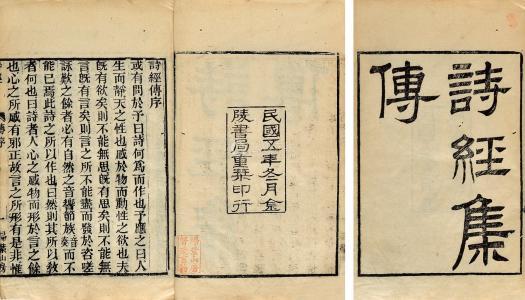 詩經集
傳
民國五年冬月金
陵書局重栞印行
詩經傳序
或有問於予曰詩何為而作也予應之曰人
生而靜天之性也感於物而動性之欲也夫
既有欲矣則不能無思既有思矣則不能無
言既有言矣則言之所不能盡而發於咨嗟
詠歎之餘者必有自然之音響節族音奏而不
能已焉此詩之所以作也曰然則其所以教
者何也曰詩者人心之感物而形於言之餘
也心之所感有邪正故言之所形有是非惟